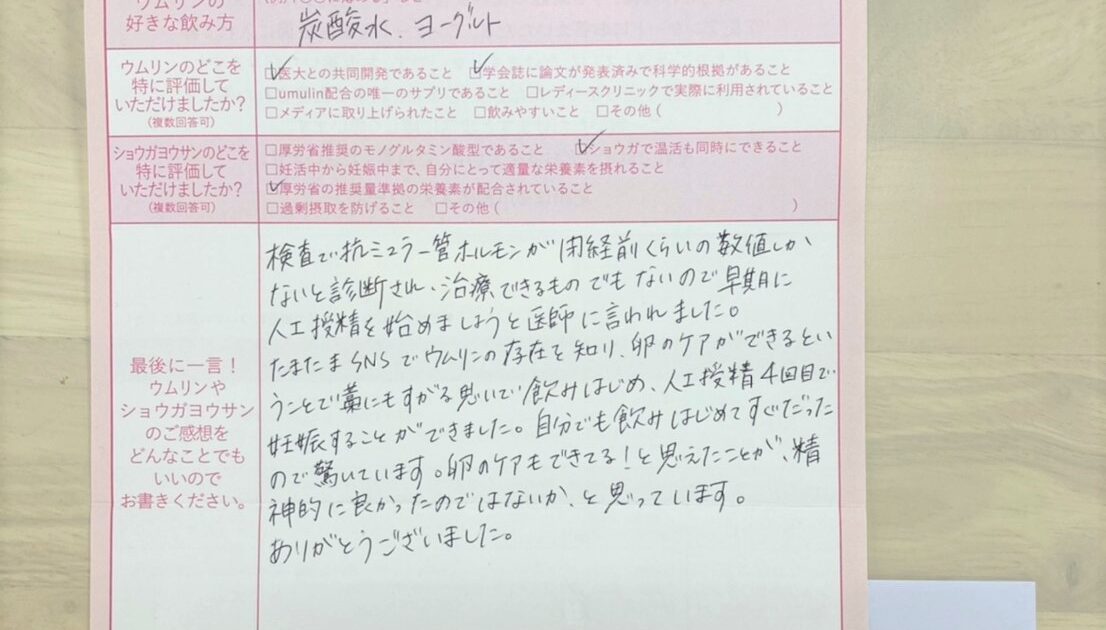 ウムリンの
好きな飲み方
炭酸水、ヨーグルト
ウムリンのどこを
特に評価して
いただけましたか?
(複数回答可)
☑医大との共同開発であること ☑学会誌に論文が発表済みで科学的根拠があること
□umulin配合の唯一のサプリであること □レディースクリニックで実際に利用されていること
□メディアに取り上げられたこと □飲みやすいこと □その他( )
ショウガヨウサンのどこを
特に評価して
いただけましたか?
(複数回答可)
□厚労省推奨のモノグルタミン酸型であること ☑ショウガで温活も同時にできること
□妊活中から妊娠中まで、自分にとって適量な栄養素を摂れること
☑厚労省の推奨量準拠の栄養素が配合されていること
□過剰摂取を防げること □その他( )
最後に一言!
ウムリンや
ショウガヨウサン
のご感想を
どんなことでも
いいので
お書きください。
検査で抗ミュラー管ホルモンが閉経前くらいの数値しか
ないと診断され、治療できるものでもないので早期に
人工授精を始めましょうと医師に言われました。
たまたまSNSでウムリンの存在を知り、卵のケアができるとい
うことで藁にもすがる思いで飲みはじめ、人工授精4回目で
妊娠することができました。自分でも飲みはじめてすぐだった
ので驚いています。卵のケアもできてる!と思えたことが、精
神的に良かったのではないか、と思っています。
ありがとうございました。